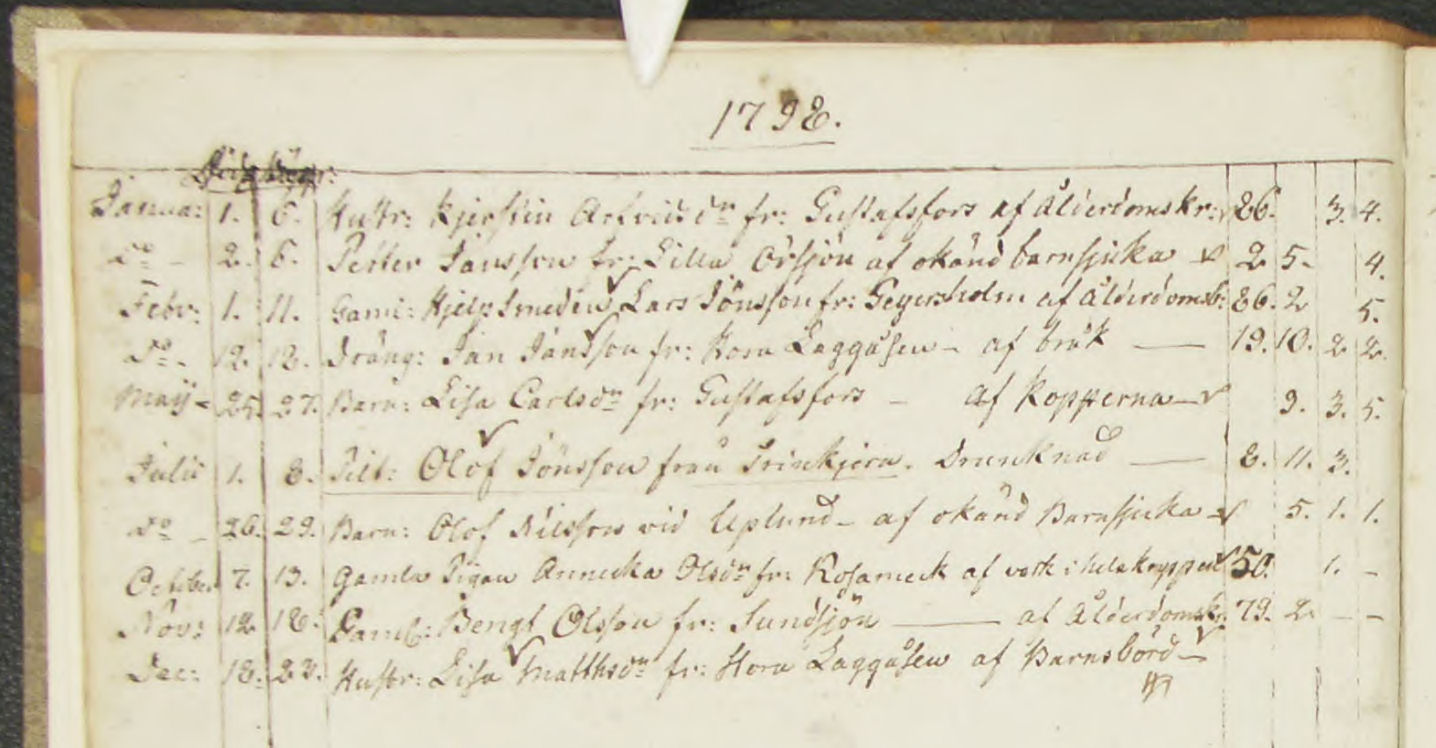 1798.
Död begr:
Janua: 1. 6. Hustr: Kjerstin Arfvidsdr fr: Gustafsfors af Ålderdomskr: 86. 3. 4.
Do - 2. 6. Petter Jansson fr: Lilla Örsjön af okänd barnsjuka 2 5. 4.
Febr: 1. 11. Gaml: Hjelp Smeden Lars Jönsson fr: Geijersholm af Ålderdomsb: 86. 2 5.
Do - 12. 18. Dräng: Jan Jansson fr: Stora Laggåsen - af bråk — 19. 10. 2 2.
Maij - 25. 27. Barn: Lisa Carlsdr fr: Gustafsfors - af Kopperna 9. 3. 5.
Julii 1. 8. Pilt: Olof Jönsson från Drunknad — 8. 11. 3.
Do - 26. 29. Barn: Olof Nilsson vid Uplund - af okänd Barnsjuka 5. 1. 1.
October 7. 13. Gamla Pigan Annicka Olsdr fr: af verk i hela kroppen 50. 1. -
Nov: 12 18. Gaml: Bengt Olsson fr: Sundsjön — af Ålderdomskr: 79. 2. - -
Dec: 18. 23. Hustr: Lisa Matthsdr fr: Stora Laggåsen af Barnsbörd -